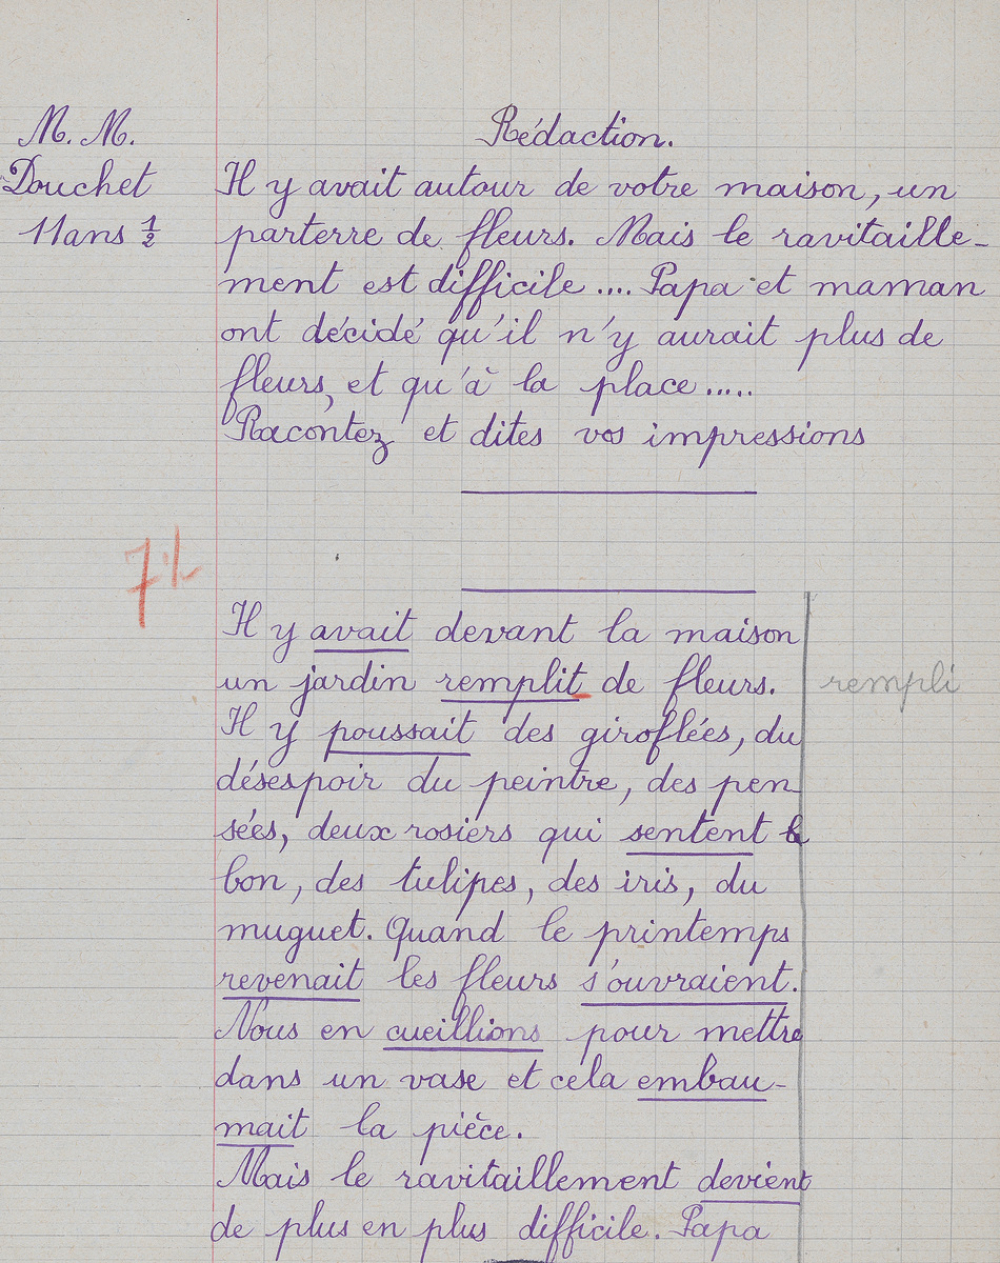 M. M.
Douchet
11 ans ½
Rédaction.
Il y avait autour de votre maison, un
parterre de fleurs. Mais le ravitaille-
ment est difficile .... Papa et maman
ont décidé qu'il n'y aurait plus de
fleurs, et qu'à la place .....
Racontez et dites vos impressions
Il y avait devant la maison
un jardin remplit de fleurs.
rempli
Il y poussait des giroflées, du
désespoir du peintre, des pen
sées, deux rosiers qui sentent
bon, des tulipes, des iris, du
muguet. Quand le printemps
revenait les fleurs s'ouvraient.
Nous en cueillions pour mettre
dans un vase et cela embau-
mait la pièce.
Mais le ravitaillement devient
de plus en plus difficile. Papa